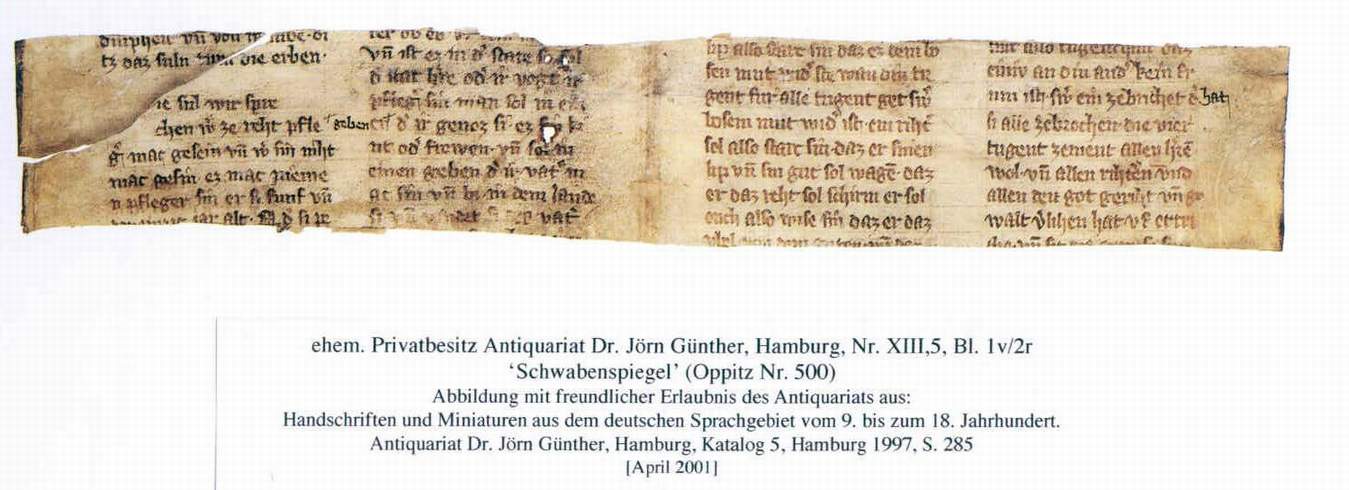 vñ von
tz daz suln die erben·
ie sul wir spre
chen ze reht pfle geben
mac gesein vñ
mac gesin ez mac nieme
n pfleger sin er si funf vñ
iar alt·
vñ ist ez in d͛
od͛ ir vogt ir
pfleg͛ sin man sol in
d͛ ir genoz si ez sin ki
nt od͛ frewen· vñ sol in
einen geben d͛ ir vat͛ m
ac sin vñ bi in dem lande
si vñ vindet
lip also starc sin daz er dem bo
sen mut wid͛ ste wan diu tu
gent fur alle tugent get sw͛
bosem mut wid͛ ist· ein riht͛
sol also starc sin· daz er sinen
lip vñ sin gut sol wagē· daz
er daz reht sol schirm er sol
ouch also wise sin daz er daz
daz
einiv an diu and͛ kein fr
um ist· sw͛ ein zebrichet d͛ hat
si alle zebrochen· die vier
tugent zement allen
wol· vñ allen vnd
allen den got geriht vñ ge
walt v͛lihen hat· vf ertri
ehem. Privatbesitz Antiquariat Dr. Jörn Günther, Hamburg, Nr. XIII,5, Bl. 1v/2r
‘Schwabenspiegel’ (Oppitz Nr. 500)
Abbildung mit freundlicher Erlaubnis des Antiquariats aus:
Handschriften und Miniaturen aus dem deutschen Sprachgebiet vom 9. bis zum 18. Jahrhundert.
Antiquariat Dr. Jörn Günther, Hamburg, Katalog 5, Hamburg 1997, S. 285
[April 2001]